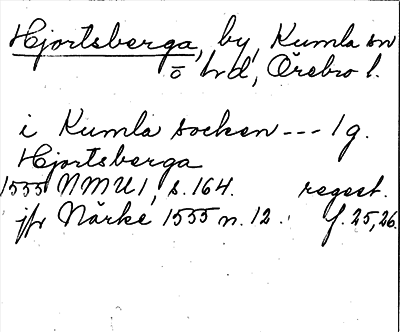 Hjortsberga, by, Kumla sn
o hd, Örebro l.
i Kumla socken --- 1 g.
Hjortsberga
1555 NMU 1, s. 164. regest.
jfr Närke 1555 n. 12. f. 25, 26.